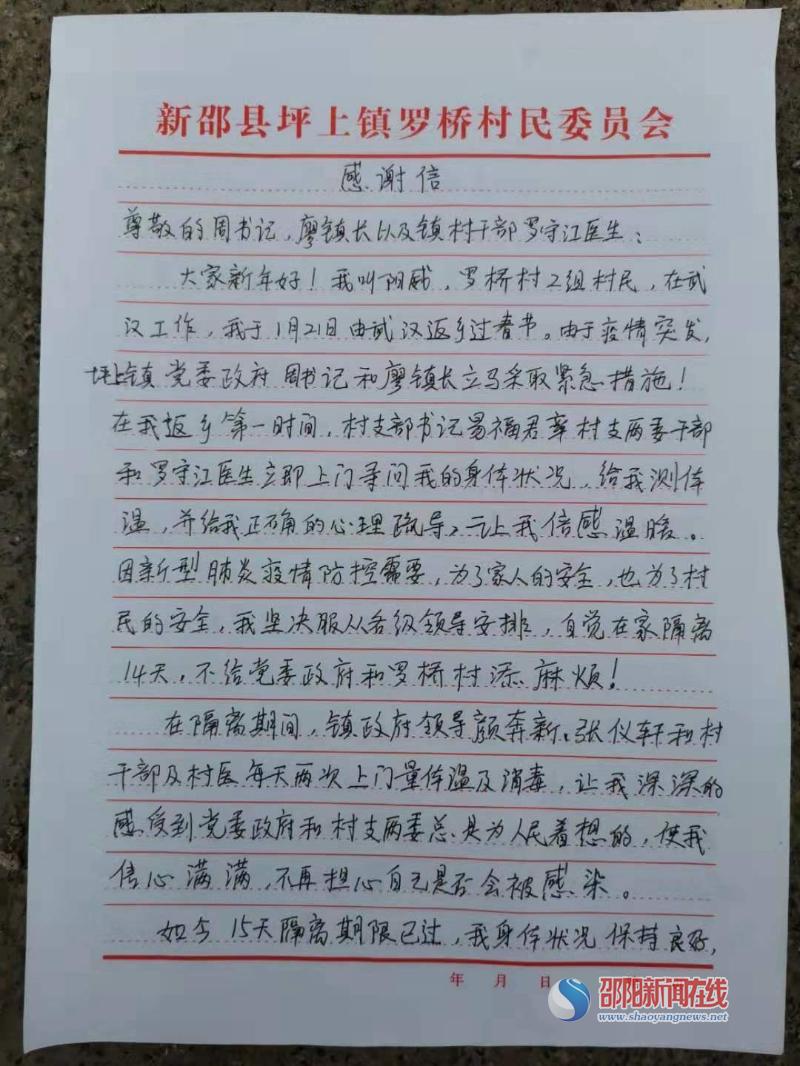 新邵县坪上镇罗桥村民委员会
感谢信
尊敬的周书记，廖镇长以及镇村干部罗守江医生：
大家新年好！我叫阳威，罗桥村2组村民，在武
汉工作，我于1月21日由武汉返乡过春节。由于疫情突发，
坪上镇党委政府周书记和廖镇长立马采取紧急措施！
在我返乡第一时间，村支部书记易福君率村支两委干部
和罗守江医生立即上门寻问我的身体状况，给我测体
温，并给我正确的心理疏导，让我倍感温暖。
因新型肺炎疫情防控需要，为了家人的安全，也为了村
民的安全，我坚决服从各级领导安排，自觉在家隔离
14天，不给党委政府和罗桥村添麻烦！
在隔离期间，镇政府领导颜奔新、张仪轩和村
干部及村医每天两次上门量体温及消毒，让我深深的
感受到党委政府和村支两委总是为人民着想的，使我
信心满满，不再担心自己是否会被感染。
如今15天隔离期限已过，我身体状况保持良好，
年 月 日
邵阳新闻在线
www.shaoyangnews.net